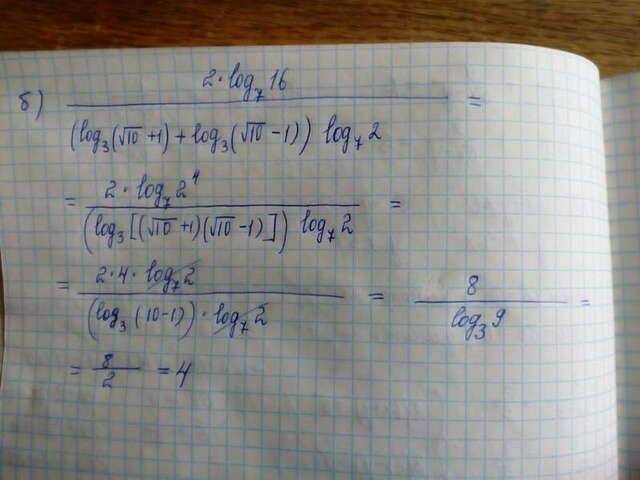 б) 2·log₇16 / ((log₃(√10 +1) + log₃(√10 -1)) log₇2) =
= 2·log₇2⁴ / ((log₃[(√10 +1)(√10 -1)]) log₇2) =
= 2·4·log₇2 / ((log₃(10-1))·log₇2) = 8 / log₃9 =
= 8/2 = 4